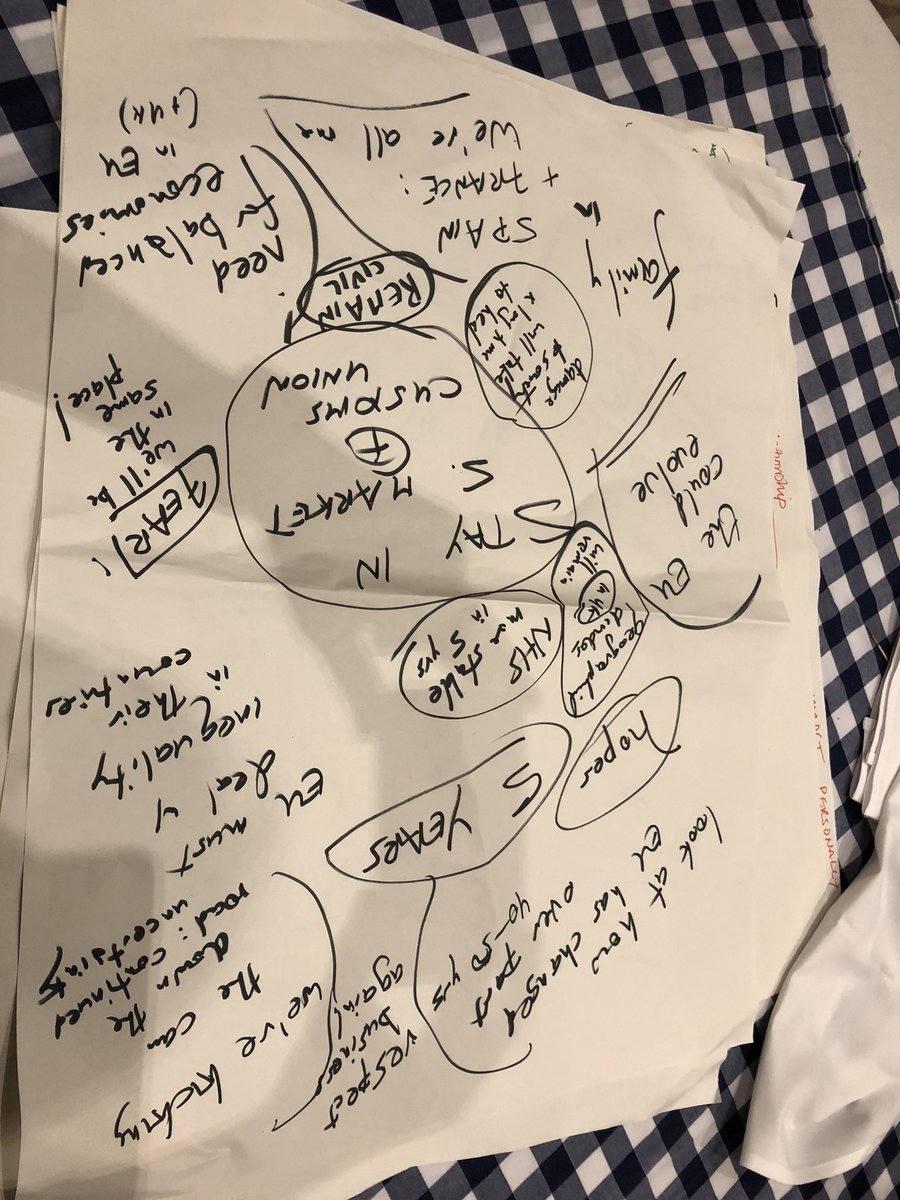 (+ UK)
in EU
economies
for balanced
need
We're all one
family
in
SPAIN
+ FRANCE:
REMAIN
CIVIL
damage
to society
will take
a long time
to heal
STAY
IN
S.
MARKET
+
CUSTOMS
UNION
FEAR!:
we'll be
in the
same
place!
could
the EU
evolve
will
remain
in UK
geographical
NHS
more stable
in 5 yrs
hopes
5
YEARS
EU must
deal w
inequality
in their
countries
look at how
EU has changed
over past
40-50 yrs
respect
business
again!
we're kicking
the can
down the
road: continued
uncertainty
PERSONALLY